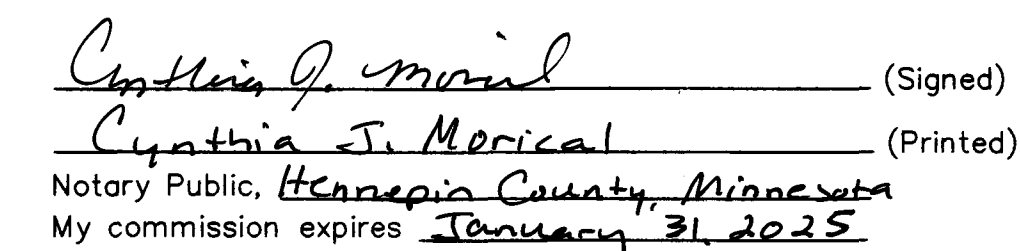 Cynthia J. Morical (Signed)
Cynthia J. Morical (Printed)
Notary Public, Hennepin County, Minnesota
My commission expires January 31, 2025